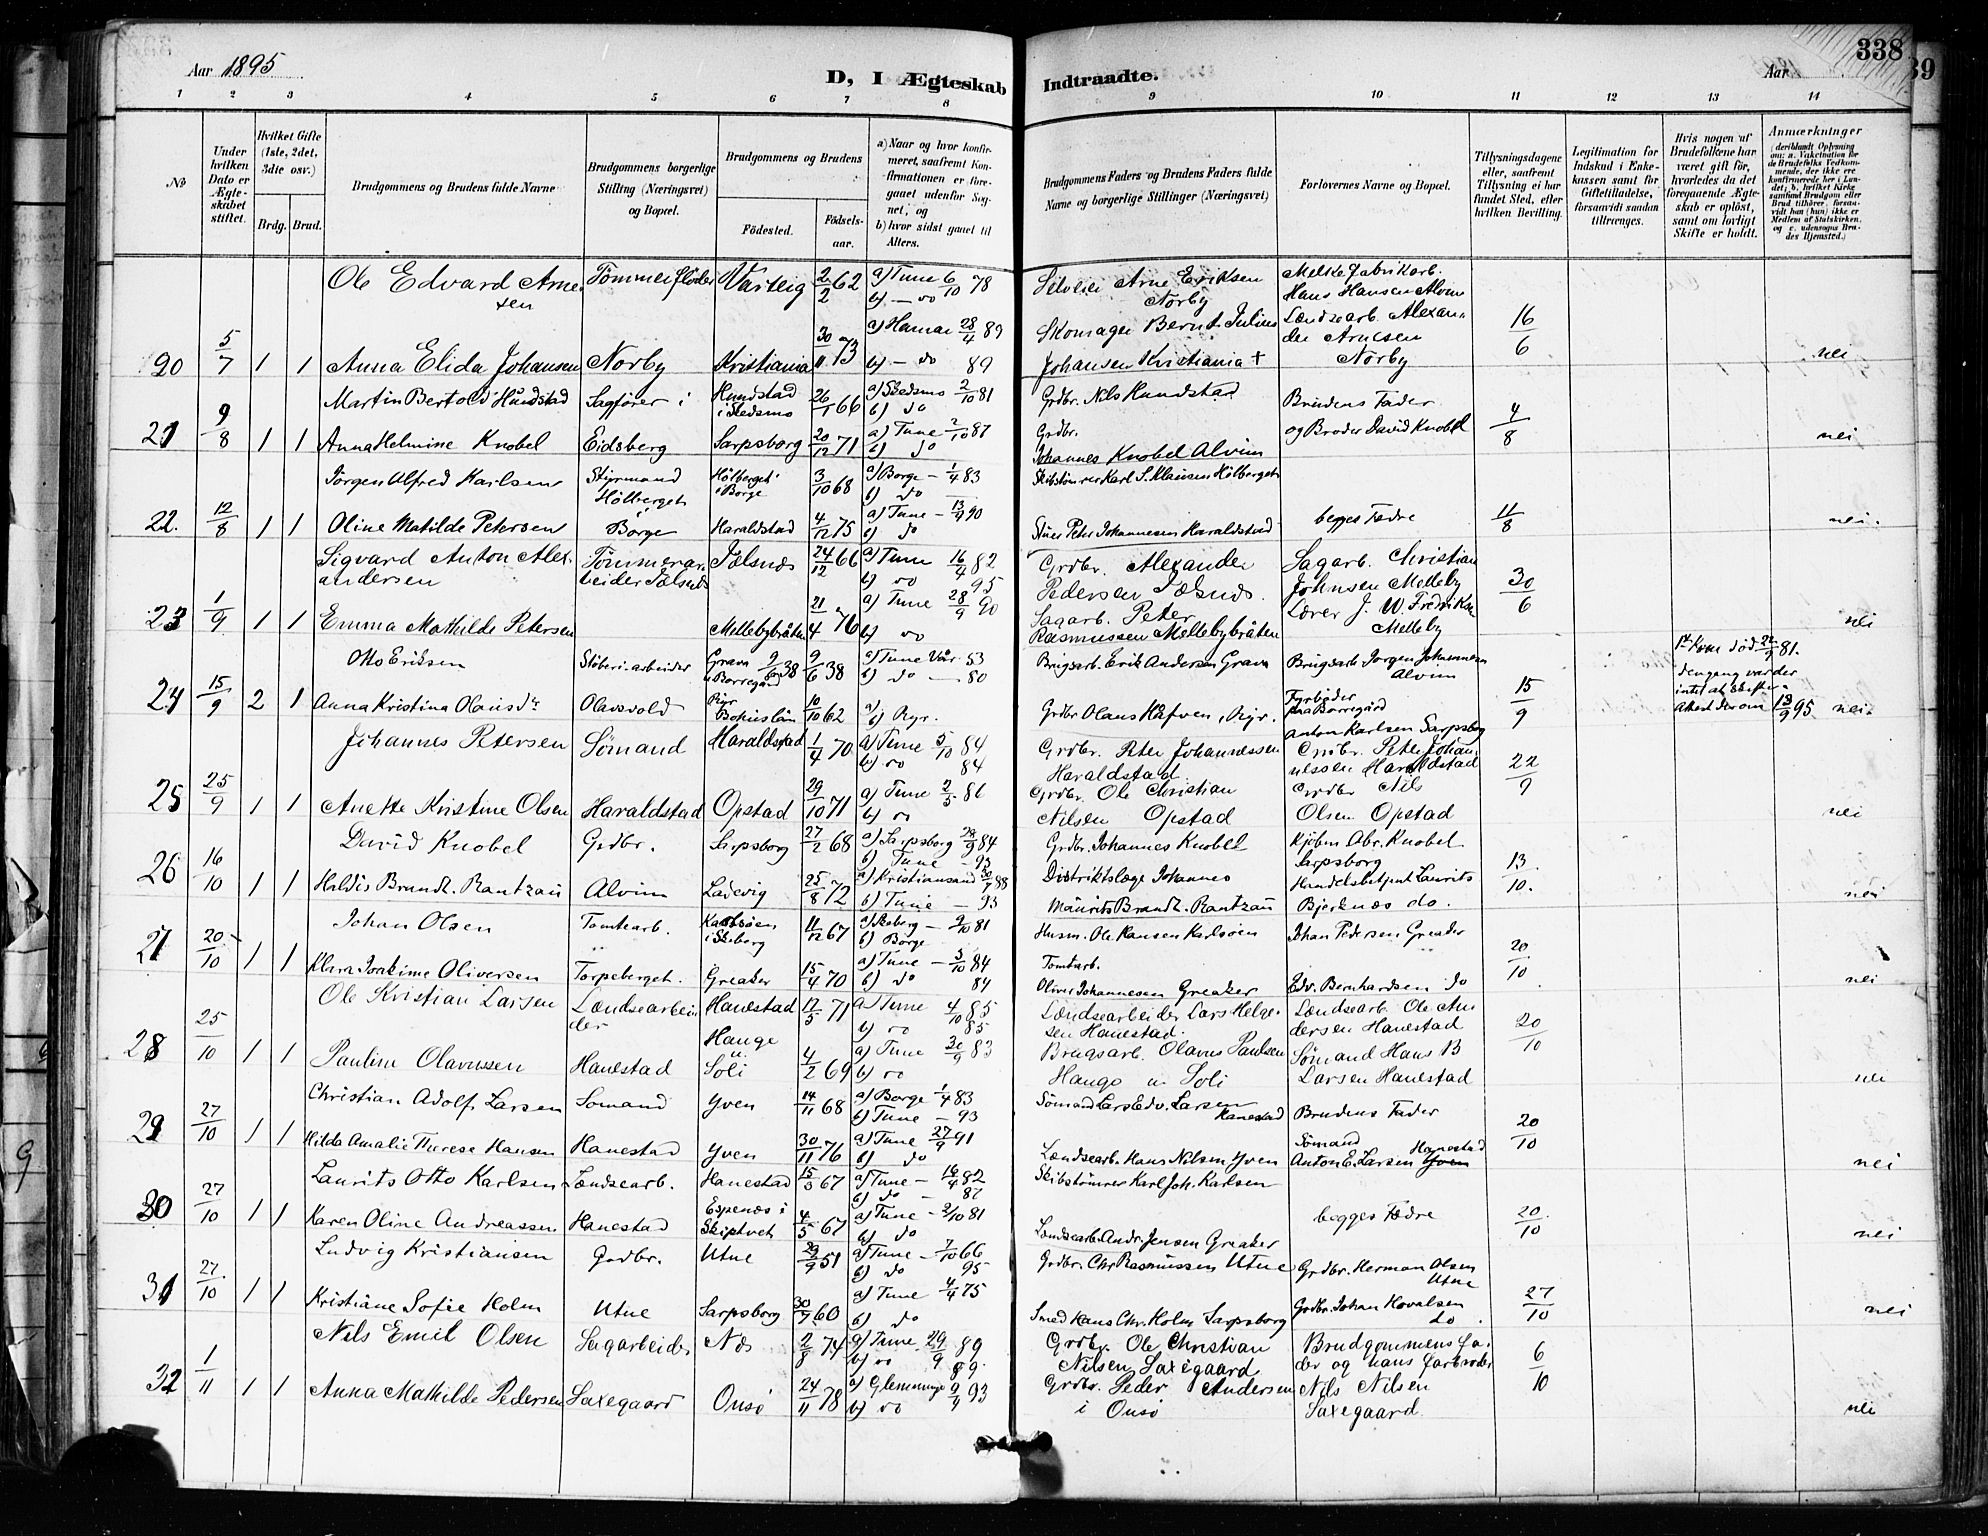 Aar 1895
D, I Ægteskab Indtraadte.
Aar
338
39
1 2 3 4 5 6 7 8 9 10 11 12 13 14
No
Under hvilken Dato er Ægteskabet stiftet.
Hvilket Gifte (1ste, 2det, 3die osv.)
Brdg. Brud.
Brudgommens og Brudens fulde Navne
Brudgommens borgerlige Stilling (Næringsvei) og Bopæl.
Brudgommens og Brudens
Fødested.
Fødselsaar.
a) Naar og hvor konfirmeret, saafremt Konfirmationen er foregaaet udenfor Sognet, og
b) hvor sidst gaaet til Alters.
Brudgommens Faders og Brudens Faders fulde Navne og borgerlige Stillinger (Næringsvei)
Forlovernes Navne og Bopæl.
Tillysningsdagene eller, saafremt Tillysning ei har fundet Sted, efter hvilken Bevilling.
Legitimation for Indskud i Enkekassen samt for Giftetilladelse, forsaavidt saadan tiltrænges.
Hvis nogen af Brudefolkene har været gift før, hvorledes da det foregaaende Ægteskab er opløst, samt om lovligt Skifte er holdt.
Anmerkninger
Ole Edvard Arnesen Tømmerfløder Varteig 2/2 62 a) Tune 6/10 78 b) — do Selveier Arne Eriksen Norby Melkefabrikarb. Hans Hansen Alvim
20 5/7 1 1 Anna Elida Johansen Norby Kristiania 30/11 73 a) Hamar 28/4 89 b) — do 89 Skomager Bernt Julius Johansen Kristiania + Lændsearb. Alexander Arnesen Norby 16/6 nei
Martin Bertold Hundstad Sagfører i Hundstad i Skedsmo 26/1 66 a) Skedsmo 2/10 81 b) do Grdbr. Nils Hundstad Brudens Fader
21 9/8 1 1 Anna Helmine Knobel Eidsberg Sarpsborg 20/12 71 a) Tune 2/10 87 b) do Grdbr. Johannes Knobel Alvim og Broder David Knobel 4/8 nei
Jørgen Alfred Karlsen Styrmand Hølberget Hølberget i Borge 3/10 68 a) Borge — 1/4 83 b) do Skibstømrer Karl S. Klausen Hølberget
22. 12/8 1 1 Oline Matilde Petersen Borge Haraldstad 4/12 75 a) Tune — 13/9 90 b) do Peter Johannesen Haraldstad begges Fædre 11/8 nei.
Sigvard Anton Alexandersen Tømmerarbeider Jelsnes Jelsnes 24/12 66 a) Tune 16/4 82 b) do 95 Grdbr. Alexander Pedersen Jelsnes. Sagarb. Christian Johnsen Melleby
23 1/9 1 1 Emma Mathilde Petersen Mellebybråten 21/4 76 a) Tune 28/9 90 b) do Sagarb. Peter Rasmussen Mellebybråten Lærer J. W. Fredriksen Melleby 30/6 nei
Otto Eriksen Sliberi-arbeider Grava u. Borregård 9/6 38 9/6 38 a) Tune Vår. 53 b) do — 80 Brugsarb. Erik Andersen Grava Brugsarb. Jørgen Johannesen Alvim 1ste Kone død 22/9 81. dengang var der intet at skifte. Attest derom 13/9 95
24 15/9 2 1 Anna Kristina Olausdr Olavsvold Ryr Bohuslän 10/10 62 a) b) Ryr. Grdbr Olaus Ryr. Fyrbøder paa Borregård Anton Karlsen Sarpsborg 15/9 nei.
Johannes Petersen Sømand Haraldstad 1/4 70 a) Tune 5/10 84 b) do 84 Grdbr. Peter Johannessen Haraldstad Grdbr. Peter Johannessen Haraldstad
25 25/9 1 1 Anette Kristine Olsen Haraldstad Opstad 29/10 71 a) Tune 2/5 86 b) do Grdbr. Ole Christian Nilsen Opstad Grdbr Nils Olsen Opstad 22/9 nei
David Knobel Grdbr. Sarpsborg 27/2 68 a) Sarpsborg 28/9 84 b) Tune — 93 Grdbr. Johannes Knobel Kjøbm Abr. Knobel Sarpsborg
26 16/10 1 1 Haldis Brandt. Rantzau Alvim Laurvig 25/8 72 a) Kristiansand 88 b) Tune — 93 Distriktslæge Johannes Maurits Brandt. Rantzau Laurits Bjerknæs do. 13/10. nei
Johan Olsen Tomtearb. Karlsøen i Skeberg 11/12 67 a) Skeberg — 2/10 81 b) Borge Husm. Ole Hansen Karlsøen Johan Pedersen Greaker
27 20/10 1 1 Klara Joakime Oliversen Torpeberget. Greaker 15/4 70 a) Tune — 5/10 84 b) do 84 Tomtarb. Oliver Johannesen Greaker Edv. Bernhardsen do 20/10 nei
Ole Kristian Larsen Lændsearbeider Hanestad 17/5 71 a) Tune 4/10 85 b) do 85 Lændsearbeider Lars Helgesen Hanestad. Lændsearb. Ole Andersen Hanestad
28 25/10 1 1 Pauline Olavussen Hanestad Hauge u Soli 4/2 69 a) Tune 30/9 83 b) do Brugsarb. Olavus Paulsen Hauge u Soli Sømand Hans B Larsen Hanestad 20/10 nei
Christian Adolf Larsen Sømand Yven 14/11 68 a) Borge 1/4 83 b) Tune — 93 Sømand Lars Edv. Larsen Hanestad Brudens Fader
29 27/10 1 1 Hilda Amalie Therese Hansen Hanestad Yven 30/11 76 a) Tune 27/9 91 b) do Lændsearb. Hans Nilsen Yven Sømand Anton E. Larsen Hanestad Yven 20/10 nei
Laurits Otto Karlsen Lændsearb. Hanestad 15/5 67 a) Tune — 16/4 82 b) do — 87 Skibstømrer Karl Joh. Karlsen
30 27/10 1 1 Karen Oline Andreassen Hanestad Espenæs i Skiptvet 4/5 67 a) Tune — 2/10 81 b) do Lændsearb. Andr. Jensen Greaker begges Fædre 20/10 nei
Ludvig Kristiansen Grdbr. Utne 29/9 51 a) Tune — 7/10 66 b) do 95 Grdbr. Chr Rasmussen Utne Grdbr. Herman Olsen Utne
31 27/10 1 1 Kristiane Sofie Holm Utne Sarpsborg 30/7 60 a) Tune 4/4 75 b) do Smed Hans Chr. Holm Sarpsborg Grdbr. Johan Hovalsen do. 27/10 nei
Nils Emil Olsen Sagarbeider Næs 2/8 74 a) Tune 29/9 89 b) do 89. Grdbr. Ole Christian Nilsen Saxegaard Brudgommens Fader og hans Farbroder
32 1/11 1 1 Anna Mathilde Pedersen Saxegaard Onsø 24/11 78 a) Glemminge 9/4 93 b) do Grdbr. Peder Andersen i Onsø Nils Nilsen Saxegaard. 6/10 nei